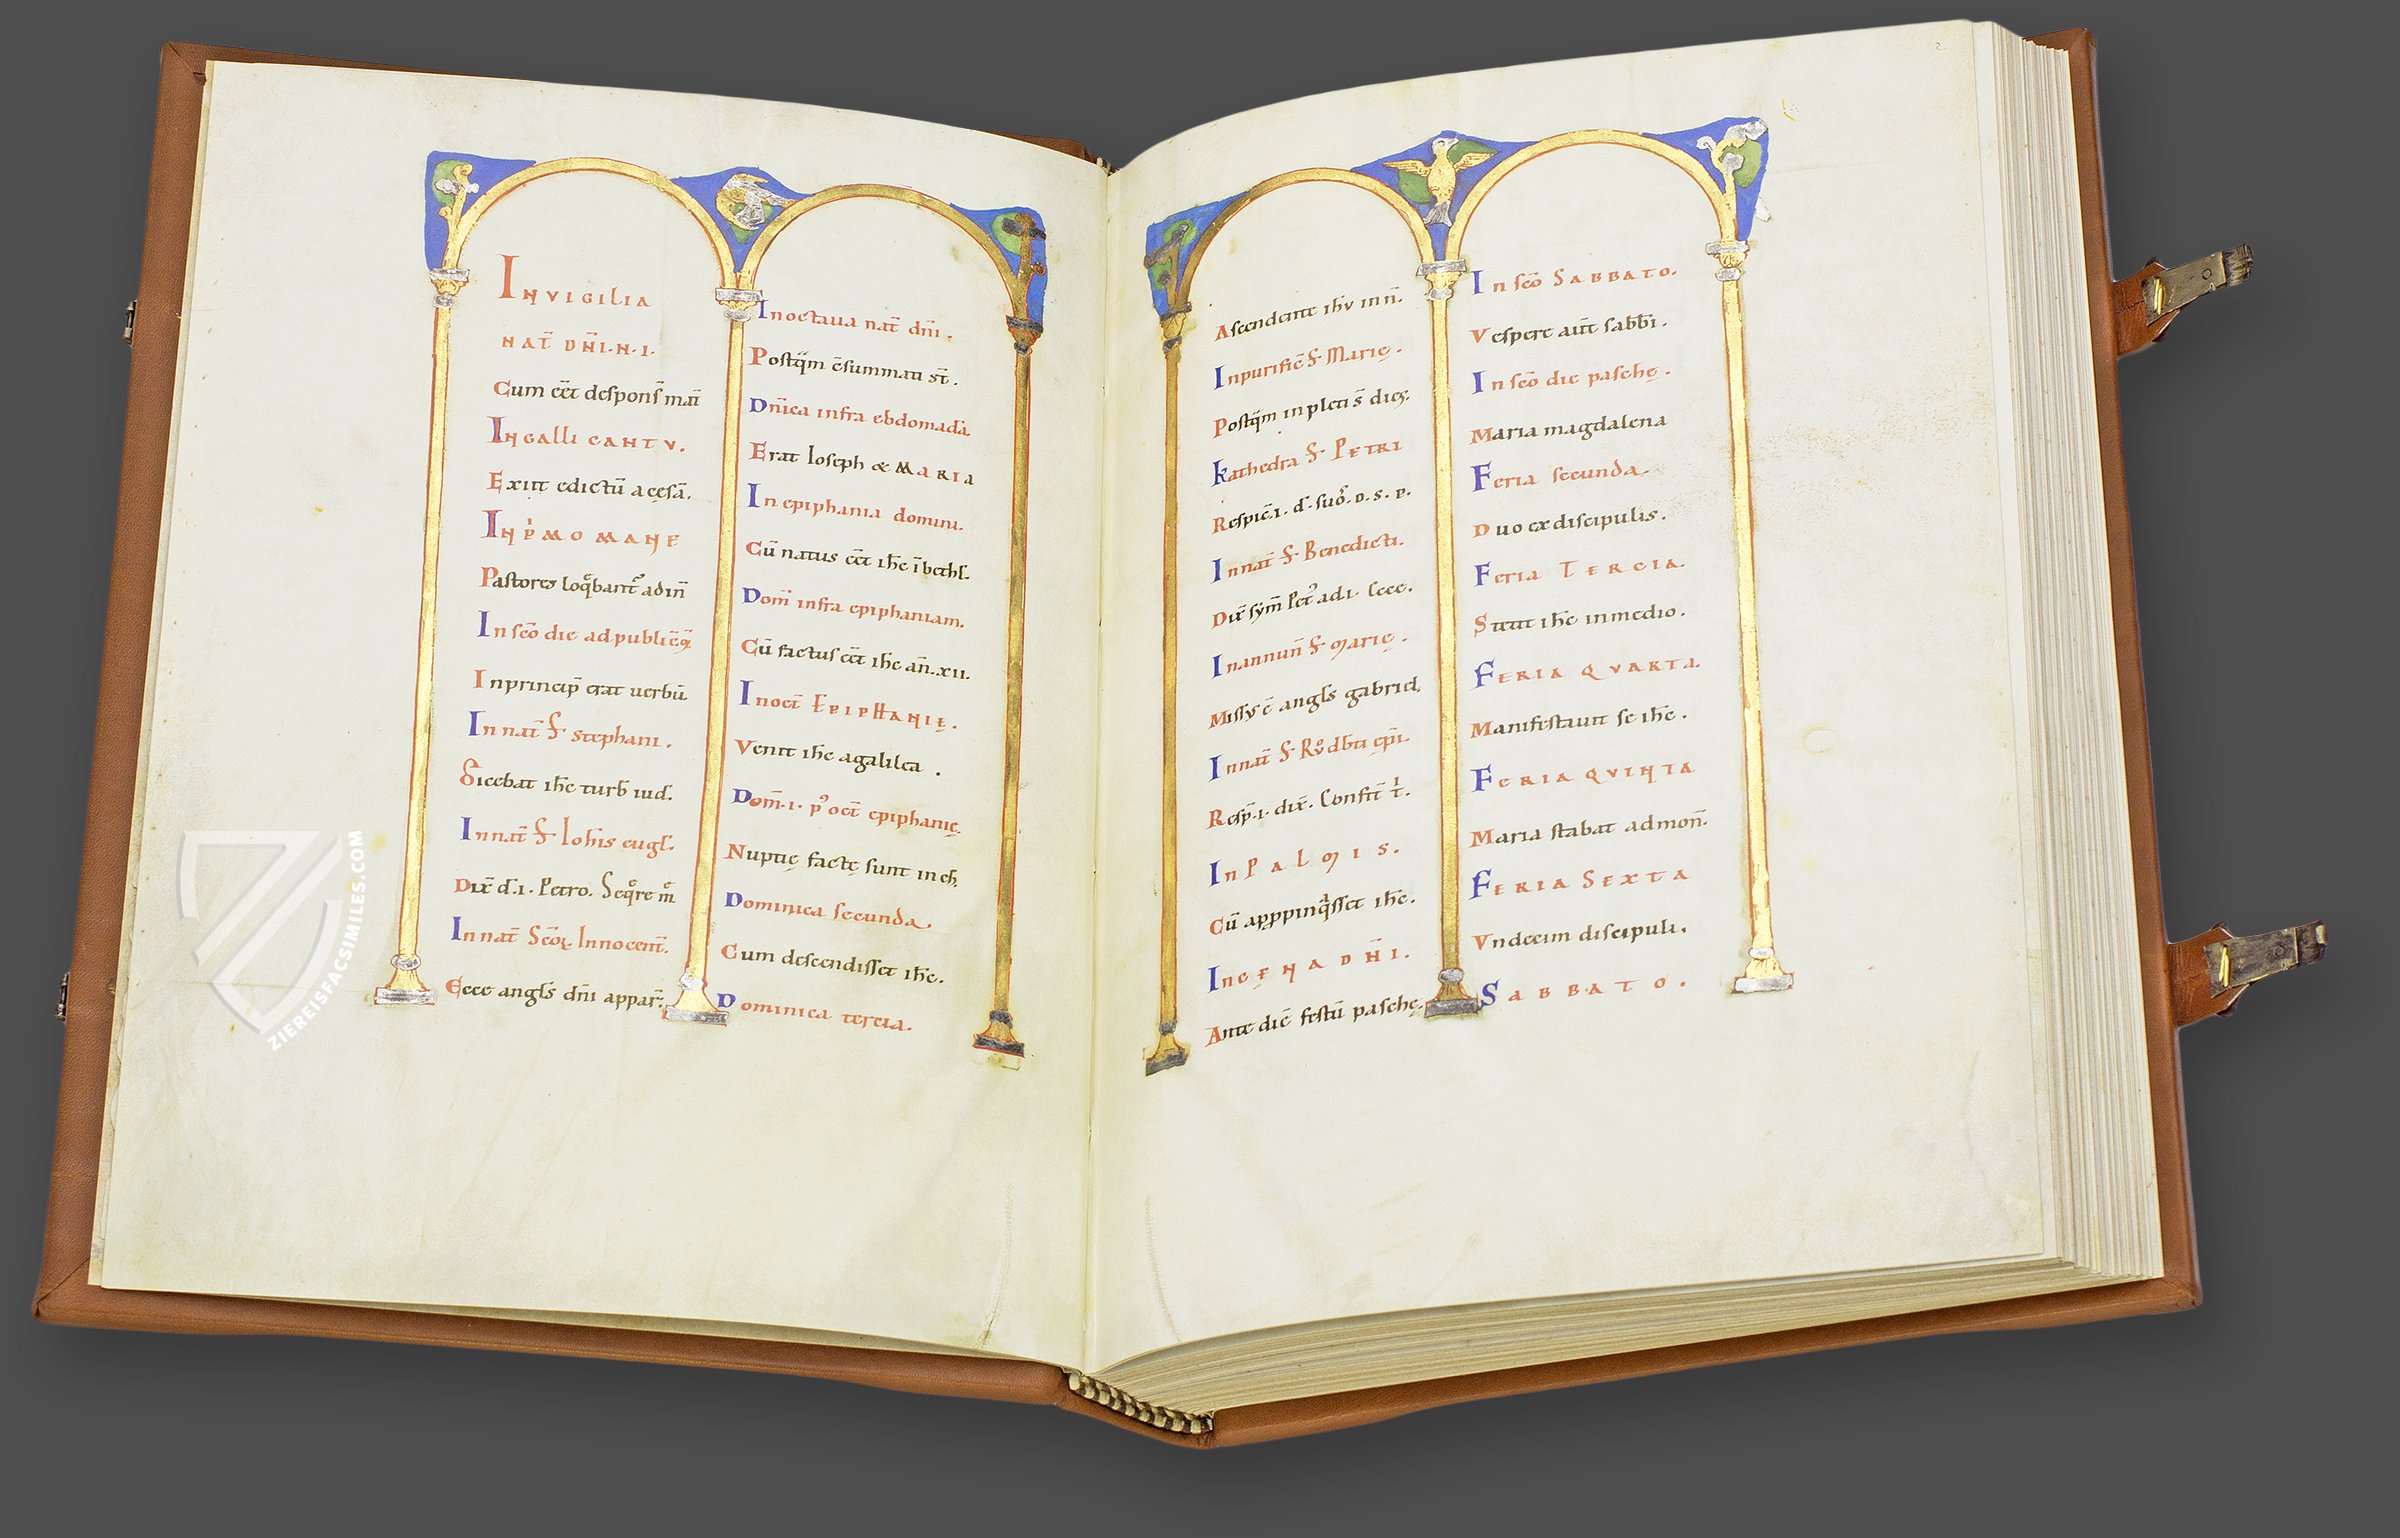 In vigilia
nat̄ dn̄i. n. i.
Cum eēt desponś mat̄
In galli cantu.
Exiit edictū a cęsā.
In p̍mo mane
Pastores loq̊bant᷑ ad in̄
In scō die ad publicē
In princip̄ erat uerbū
In nat̄ S᷑ stephani.
Dicebat ih̄c turb̄ iud.
In nat̄ S᷑ Ioh̄is eugl̄.
Dix̄ d. i. Petro. Seq̊re m̊
In nat̄ Scōꝝ Innocent̄.
Ecce angl̄s dn̄i appar̄.
In octaua nat̄ dn̄i.
Postq̄m c̄summati st̄.
Dn̄ica infra ebdomadā.
Erat Ioseph & Maria
In epiphania domini.
Cū natus eēt ih̄c ī bethl̄.
Dom̄ infra epiphaniam.
Cū factus eēt ih̄c an̄. xii.
In oct̄ Epiphanię.
Venit ih̄c a galilea.
Dom̄. i. p᷒ oct̄ epiphanię.
Nuptię factę sunt in ch.
Dominica secunda.
Cum descendisset ih̄c.
Dominica tercia.
Ascendente ih̄u in n̄.
In purific̄ S᷑ Marię.
Postq̄m inpleti s̄ dies.
Kathedra S᷑ Petri
Respic̄. i. d. suo᷒. D. S. P.
In nat̄ S᷑ Benedicti.
Dix̄ sym̄ Pet᷒ ad i. Ecce.
In annun̄ S᷑ Marię.
Missus ē angl̄s gabriel.
In nat̄ S᷑ Růdb̄ti ep̄i.
Resp̄. i. dix̄. Confit̄ t̍.
In Palmis.
Cū appropinq̊sset ih̄c.
In cęna dn̄i.
Ante diē festū paschę.
In scō Sabbato.
Vespere aut̄ sabb̄i.
In scō die paschę.
Maria magdalena
Feria secunda.
Duo ex discipulis.
Feria Tercia.
Stetit ih̄c in medio.
Feria quarta.
Manifestauit se ih̄c.
Feria quinta
Maria stabat ad mon̄.
Feria Sexta
Vndecim discipuli.
Sabbato.
2
ZIEREISFACSIMILES.COM